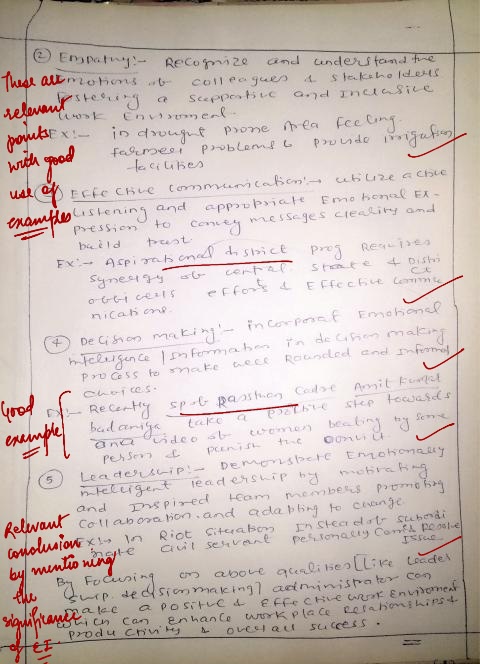 ② Empathy:- Recognize and understand the
emotions of colleagues & stakeholders
fostering a supportive and Inclusive
work Enviroment.
Ex:- in drought prone area feeling
farmer problems & provide irrigation
facilities
These are
relevant
points
with good
use of
examples
Effective communication:- utilize active
Listening and appropriate Emotional Ex-
pression to convey messages clearity and
build trust
Ex:- Aspirational district prog Requires
synergy of central, state & Distri
ct
officers efforts & Effective commu
nications.
④ Decision making:- incorporat Emotional
intelligence / Information in decision making
process to make well Rounded and Informed
choices.
Good
example
Ex:- Recently Rajsthan Cadre Amit Kumar
take a positive step towards
video of women beating by some
person & punish the convict.
⑤ Leadership:- Demonstrate Emotionally
intelligent leadership by motivating
and Inspired team members promoting
Collaboration and adapting to change.
Ex:- In Riot Situation Instead of subordi
nate civil servant personally Resolve
Issue.
Relevant
conclusion
by mentioning
the
significance
of EI
By Focusing on above qualities [Like Leader
ship, decision making] administrator can
make a positive & Effective work Enviroment
which can enhance work place Relationships &
productivity & overall success.